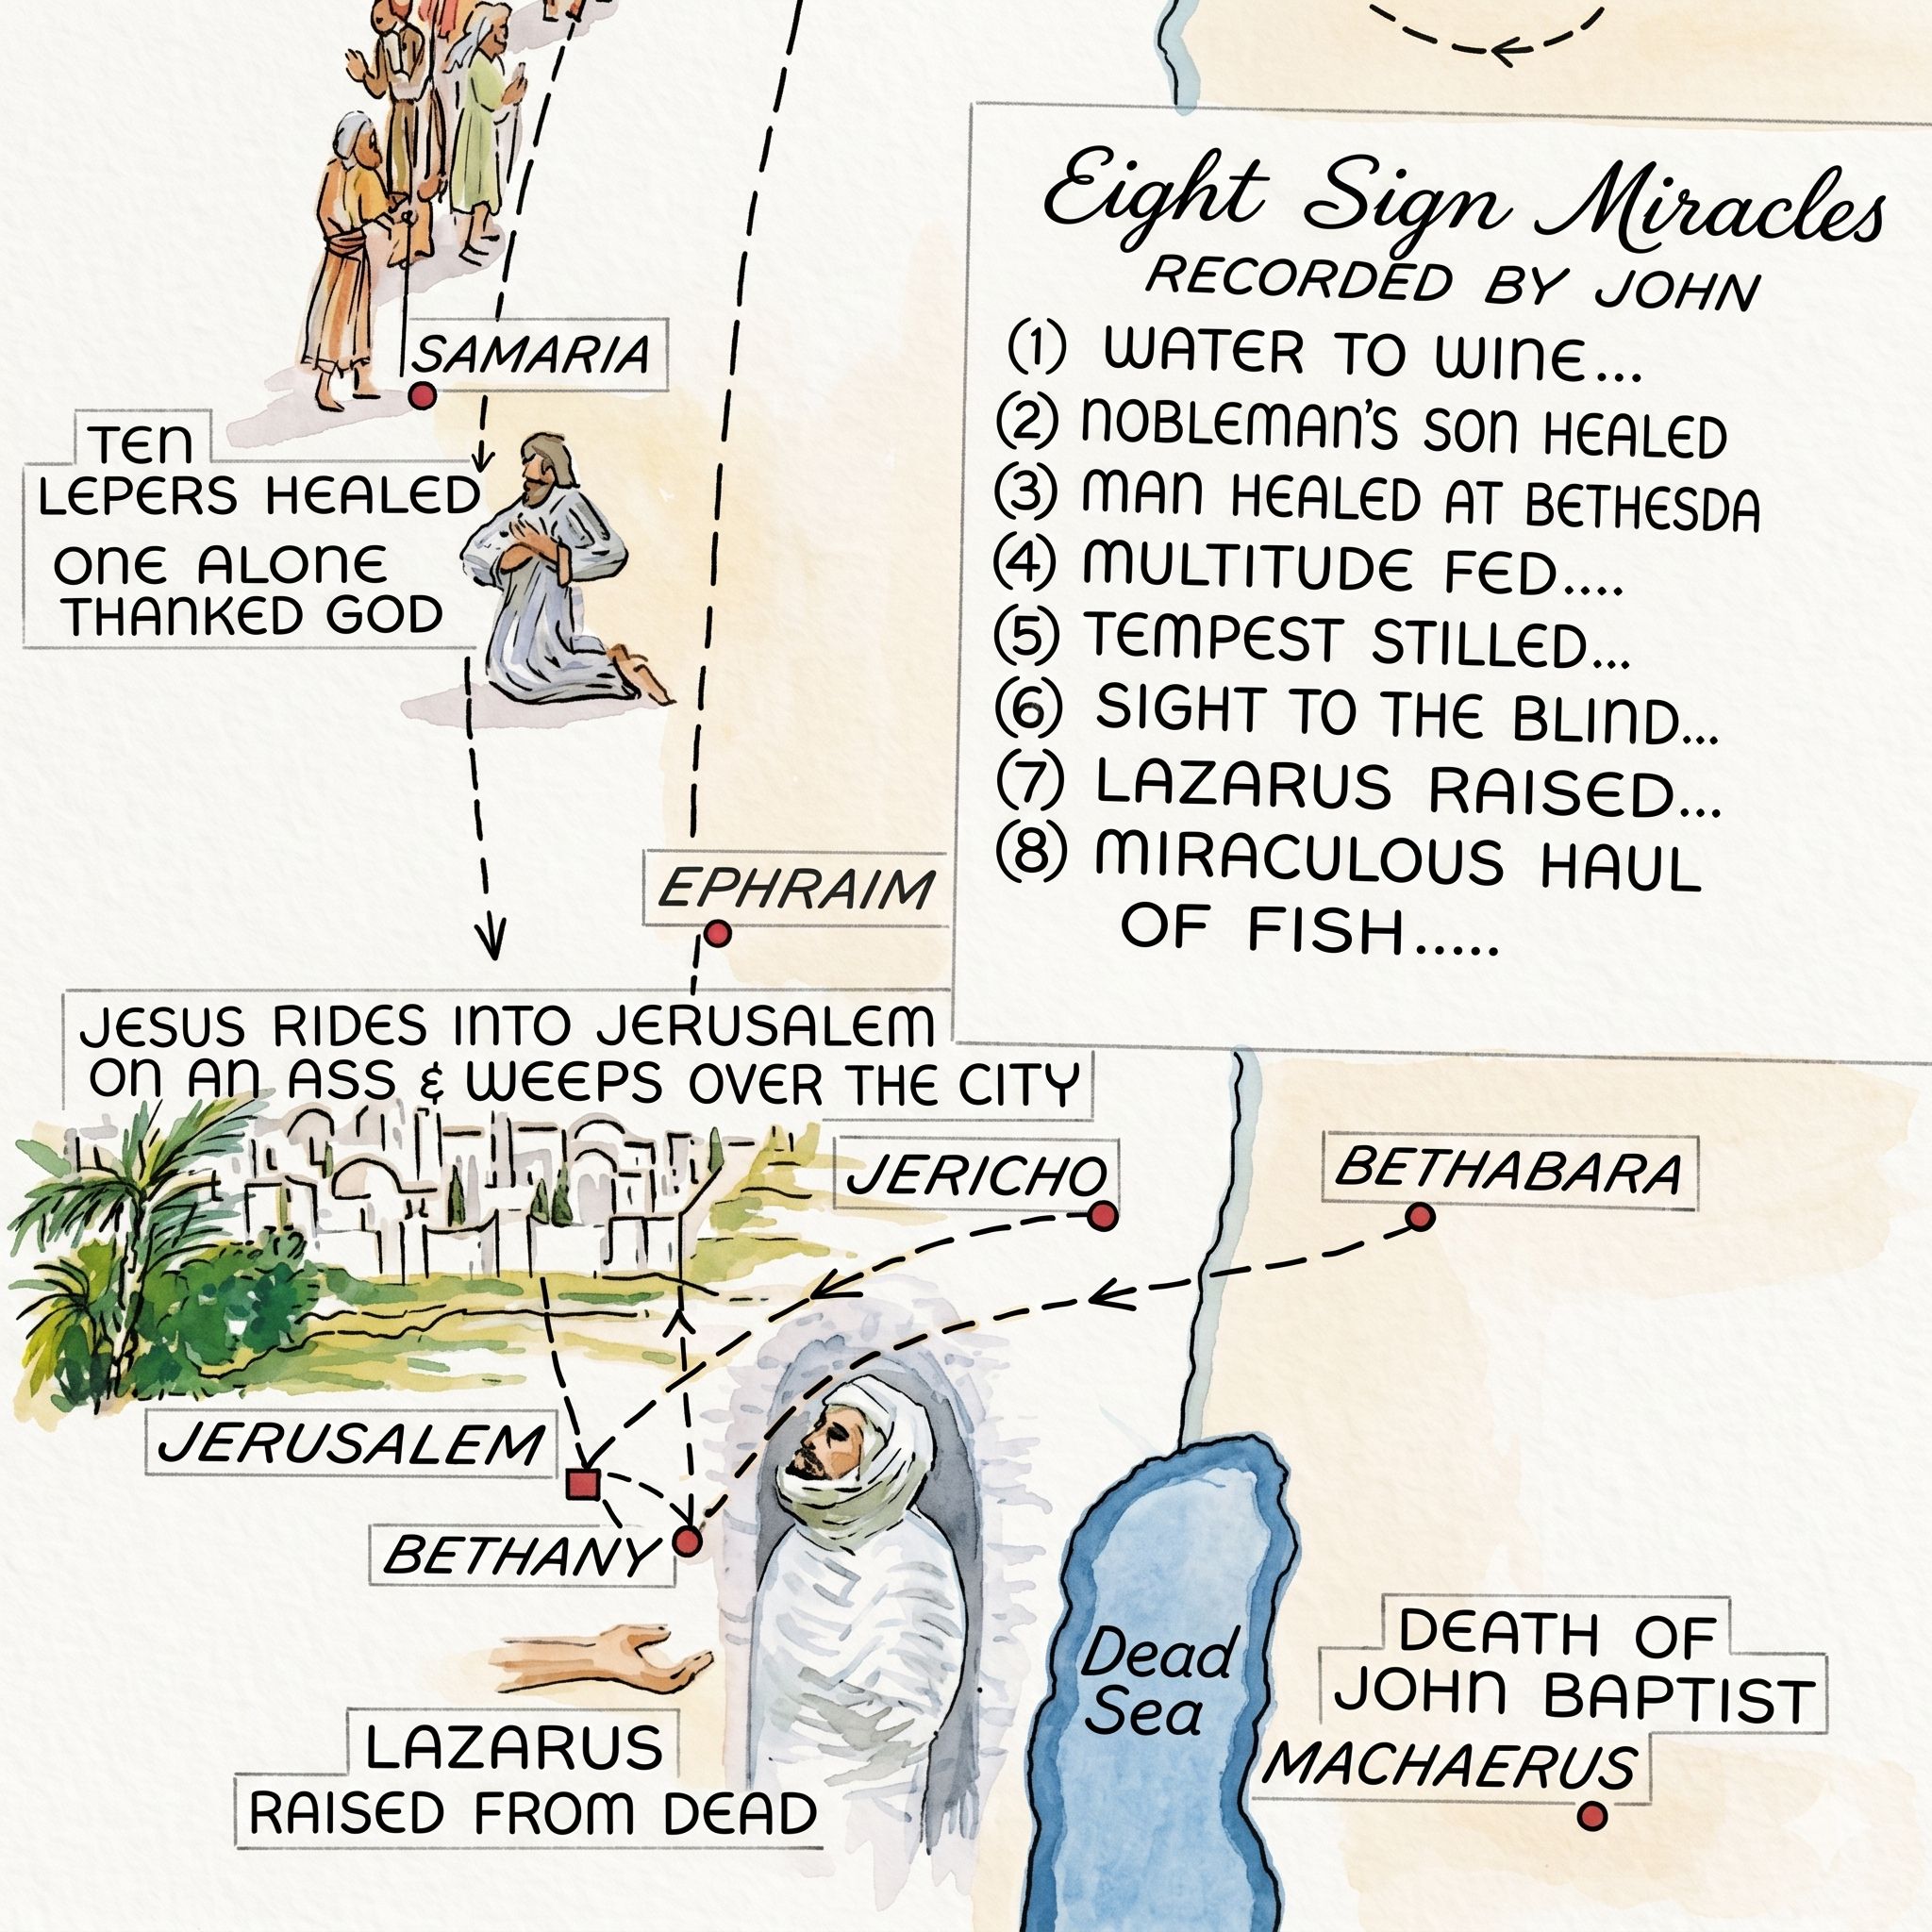 Eight Sign Miracles
RECORDED BY JOHN
(1) WATER TO WINE...
(2) NOBLEMAN'S SON HEALED
(3) MAN HEALED AT BETHESDA
(4) MULTITUDE FED....
(5) TEMPEST STILLED...
(6) SIGHT TO THE BLIND...
(7) LAZARUS RAISED...
(8) MIRACULOUS HAUL
OF FISH.....
SAMARIA
TEN
LEPERS HEALED
ONE ALONE
THANKED GOD
EPHRAIM
JESUS RIDES INTO JERUSALEM
ON AN ASS & WEEPS OVER THE CITY
JERICHO
BETHABARA
JERUSALEM
BETHANY
LAZARUS
RAISED FROM DEAD
Dead
Sea
DEATH OF
JOHN BAPTIST
MACHAERUS